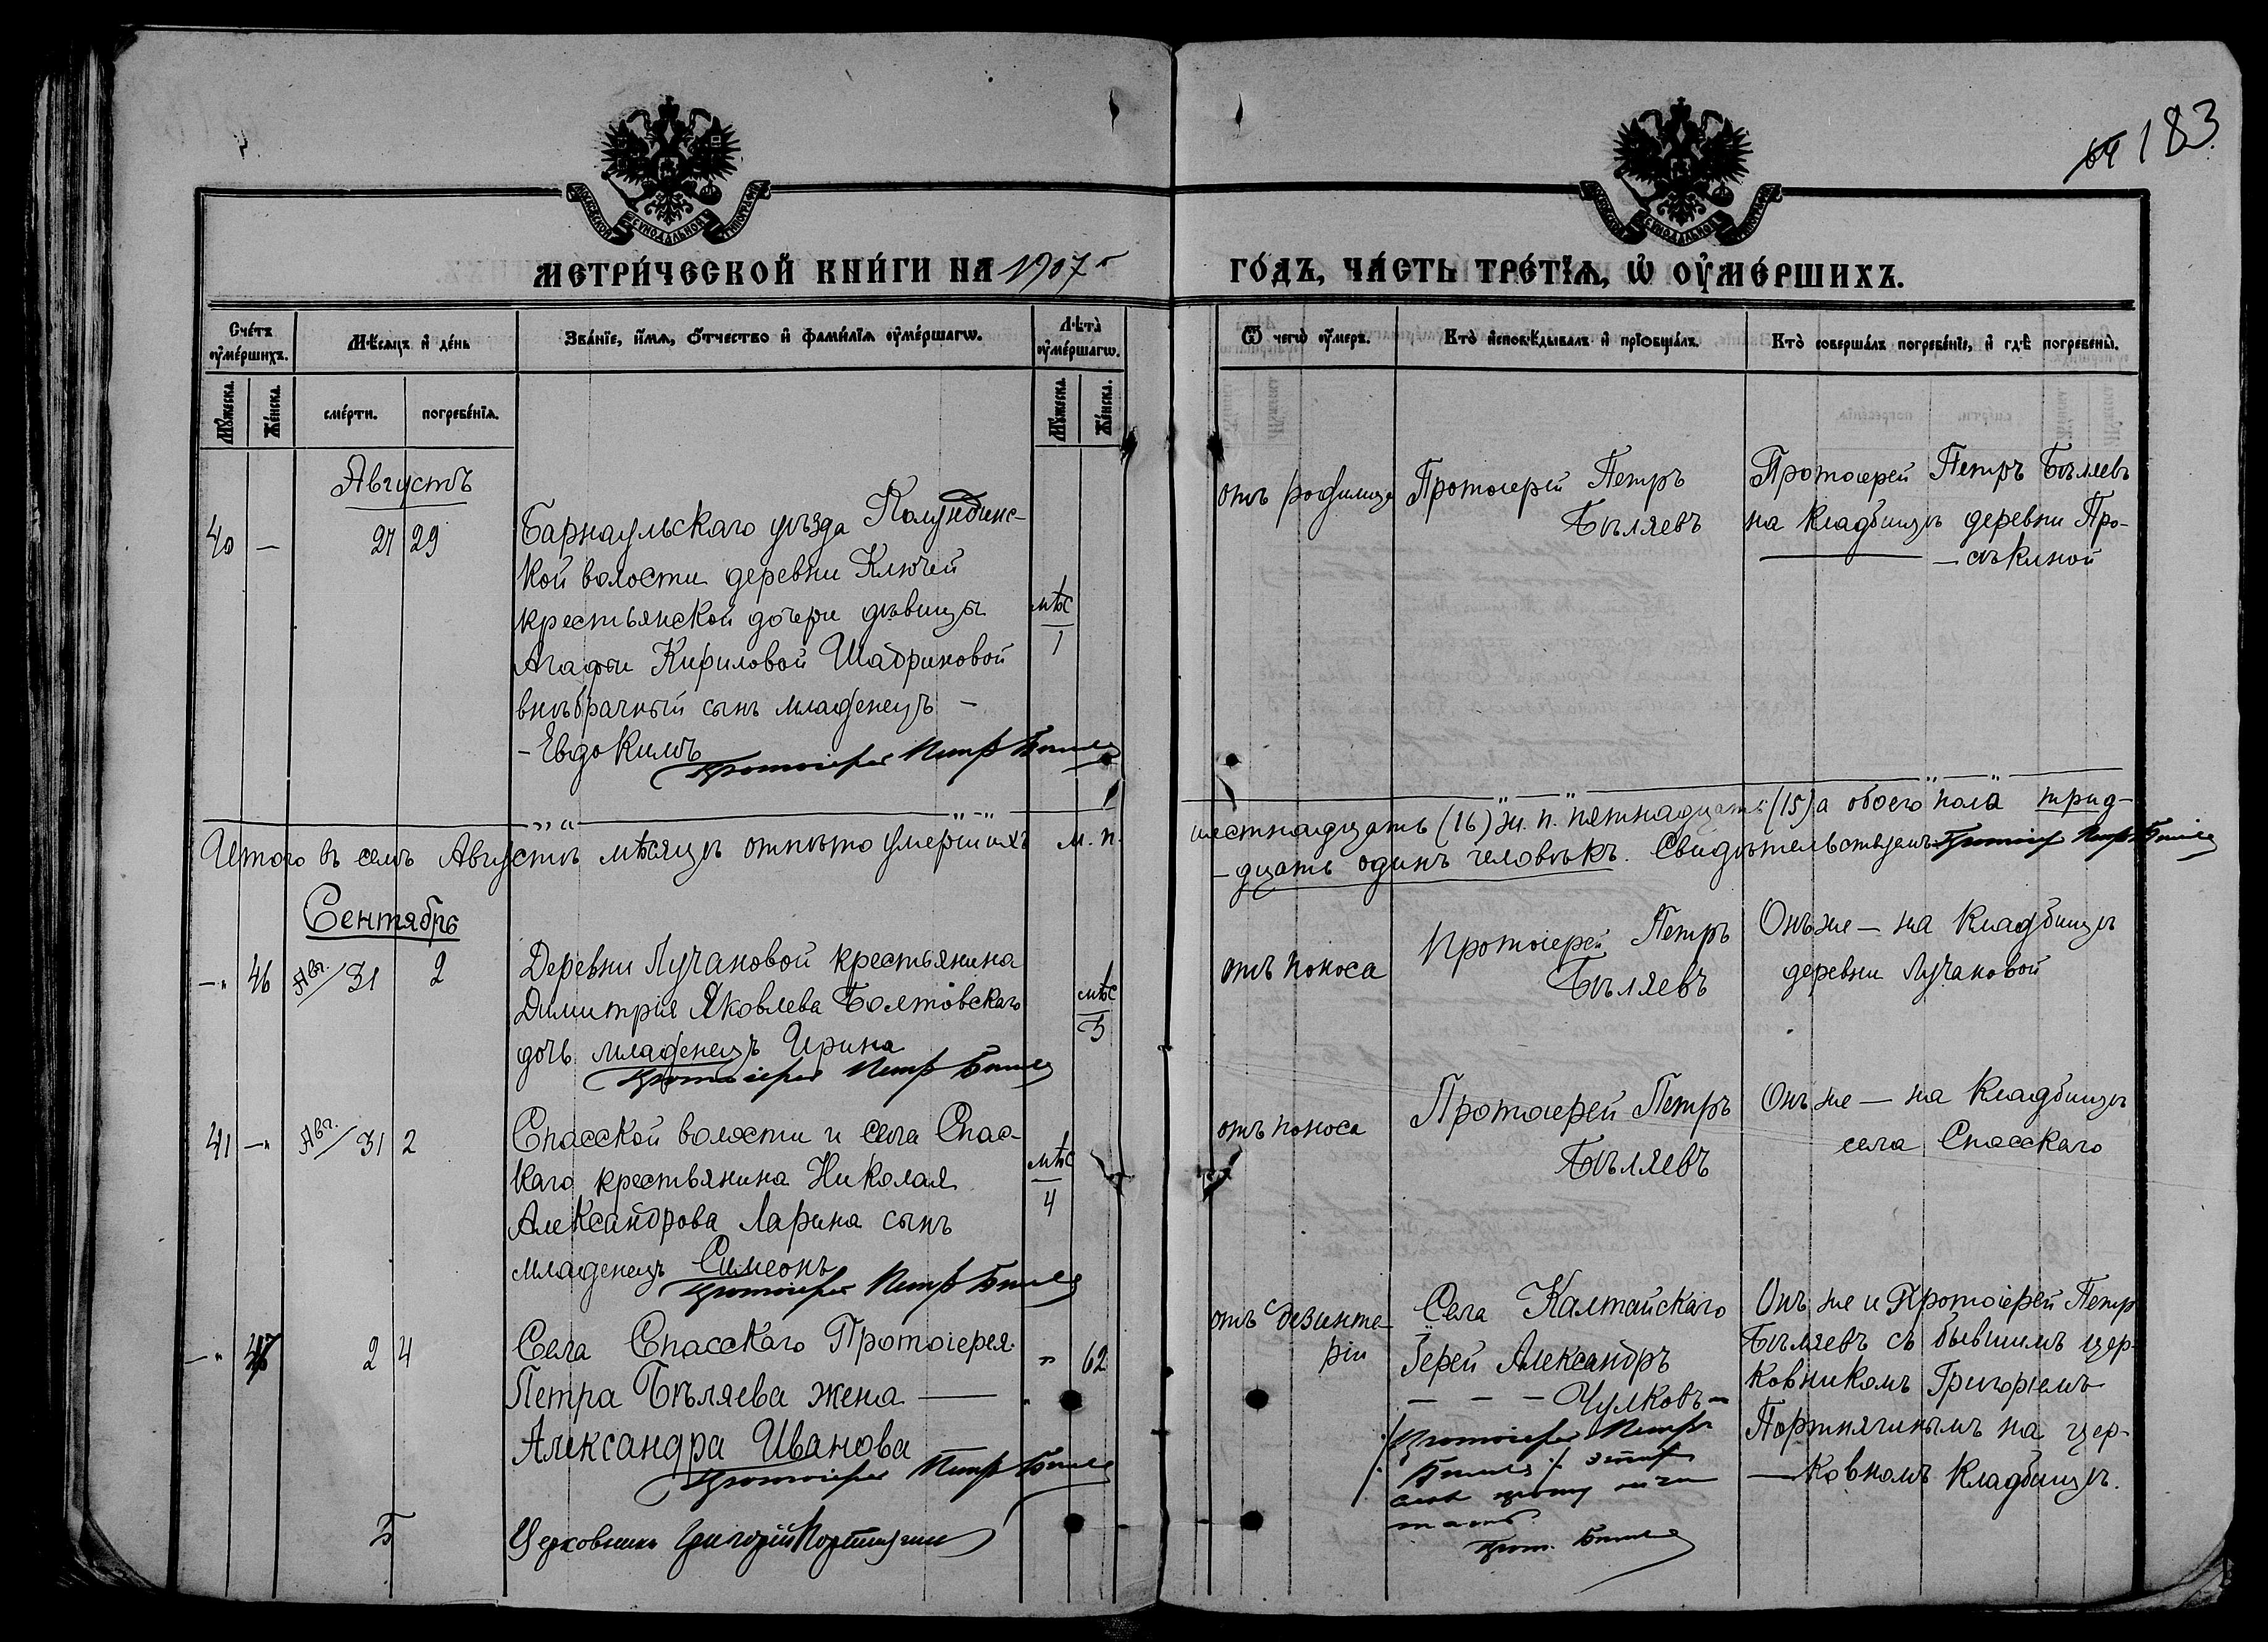 183
МЕТРИ́ЧЕСКОЙ КНИ́ГИ НА 1907 г
ГО́ДЪ, ЧА́СТЬ ТРЕ́ТІѦ, Ѡ҆ ОУ҆МЕ́РШИХЪ.
Сче́тъ оу҆ме́ршихъ.
Мѣ́сѧцъ и҆ де́нь
Зва́нїе, и҆́мѧ, ѻ҆́тчество и҆ фами́лїѧ оу҆ме́ршагѡ.
Лѣ́та оу҆ме́ршагѡ.
Ѿ чегѡ̀ оу҆́меръ.
Кто̀ и҆сповѣ́дывалъ и҆ прїѡбща́лъ.
Кто̀ соверша́лъ погребе́нїе, и҆ гдѣ̀ погребены̀.
Мꙋ́жеска.
Же́нска.
сме́рти.
погребе́нїѧ.
Мꙋ́жеска.
Же́нска.
Августъ
40 — 27 29
Барнаульскаго уѣзда
кой волости деревни Ключей
крестьянской дочери дѣвицы
Агафіи Кириловой Шадриновой
внѣбрачный сынъ младенецъ –
– Евдокимъ
Протоіерей Петръ Бѣляев
мѣс
1
отъ родимца
Протоіерей Петръ
Бѣляевъ
Протоіерей Петръ Бѣляевъ
на кладбищѣ деревни Про-
— сѣкиной
Итого въ семъ Августѣ мѣсяцѣ отпѣто умершихъ м. п.
шестнадцать (16) ж. п. пятнадцать (15) а обоего пола трид-
– дцать одинъ человѣкъ. Свидѣтельствуемъ Протоіер Петръ Бѣляев
Сентябрь
—" 46 Авг./31 2
Деревни Лучановой крестьянина
Димитрія Яковлева Болтовскаго
дочь младенецъ Ирина
Протоіерей Петръ Бѣляев
мѣс
5
отъ поноса
Протоіерей Петръ
Бѣляевъ
Онъ же — на кладбищѣ
деревни Лучановой
41 —" Авг./31 2
Спасской волости и села Спас-
каго крестьянина Николая
Александрова Ларина сынъ
младенецъ Симеонъ
Протоіерей Петръ Бѣляев
мѣс
4
отъ поноса
Протоіерей Петръ
Бѣляевъ
Онъ же — на кладбищѣ
села Спасскаго
—" 47 2 4
Села Спасскаго Протоіерея
Петра Бѣляева жена —
Александра Иванова
Протоіерей Петръ Бѣляев
" 62
отъ дезинте-
ріи
Села Калтайскаго
Іерей Александръ
– – – Чулковъ –
/: Протоіерей Петръ
Бѣляев :/
Прот. Бѣляев
Онъ же и Протоіерей Петр
Бѣляевъ съ бывшимъ цер-
ковникомъ Григоріемъ
Портнягинымъ на цер-
— ковномъ кладбищѣ.
Церковникъ Григорій Портнягин